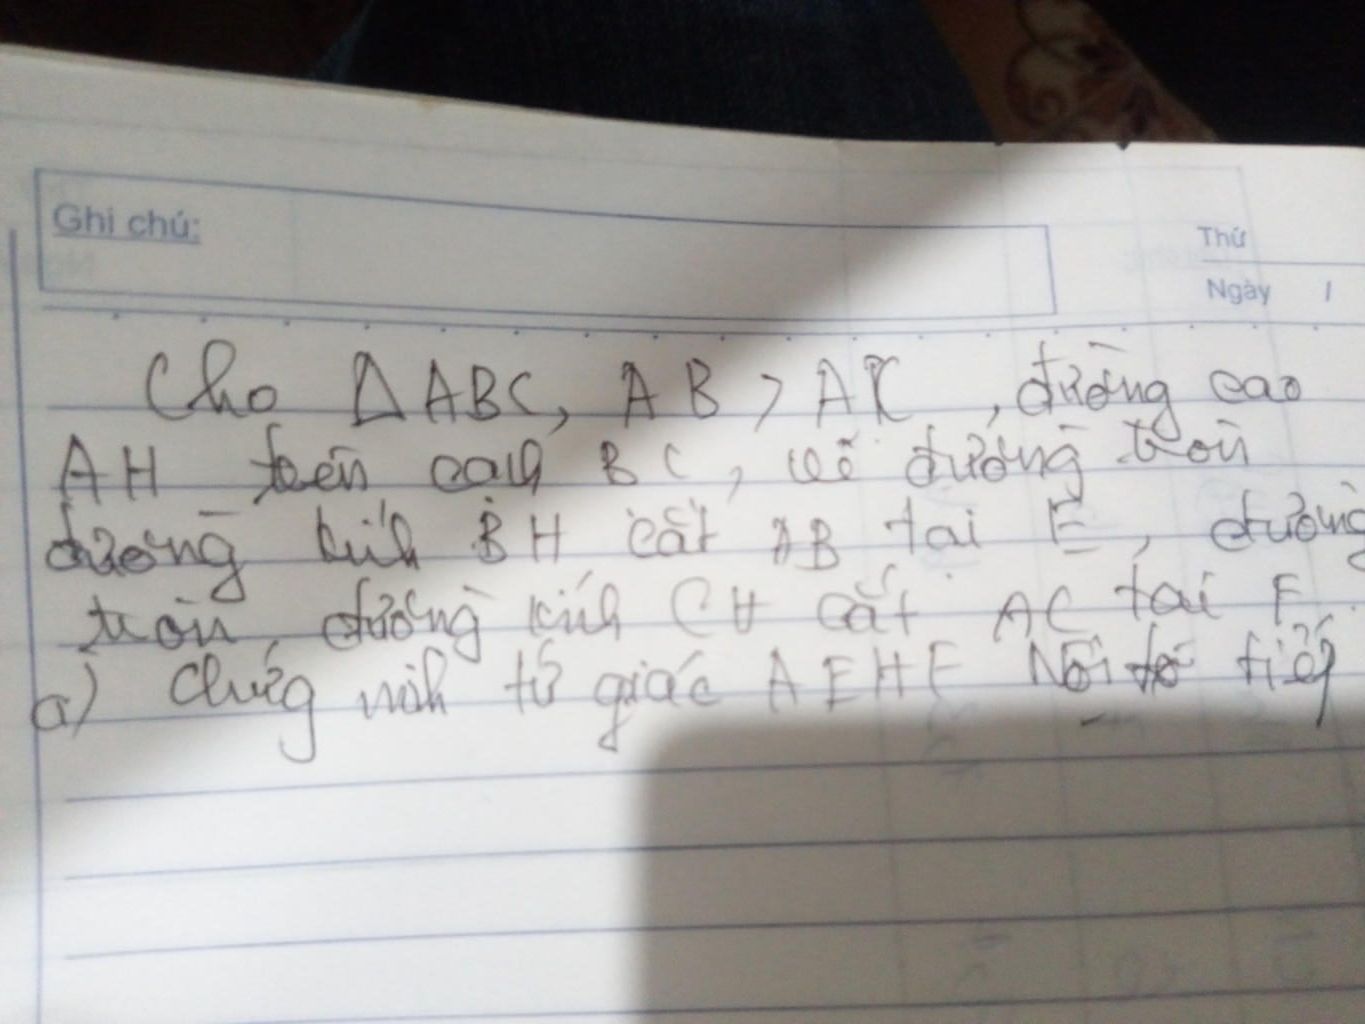 Ghi chú:
Thứ
Ngày /
Cho ΔABC, AB > AC, đường cao
AH trên cạnh BC, vẽ đường tròn
đường kính BH cắt AB tại E, đường
tròn, đường kính CH cắt AC tại F.
a) Chứng minh tứ giác AEHF Nội tiếp